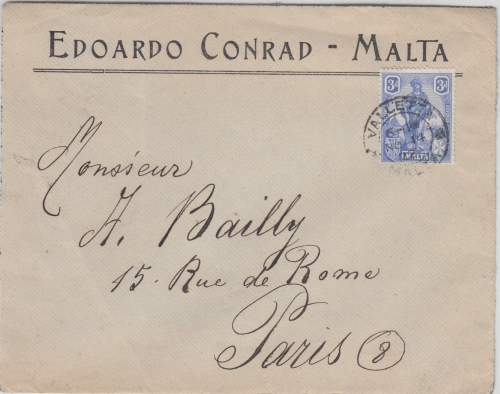 EDOARDO CONRAD - MALTA
3d 3d
VALLETTA
MALTA
Monsieur
A. Bailly
15. Rue de Rome
Paris (8)